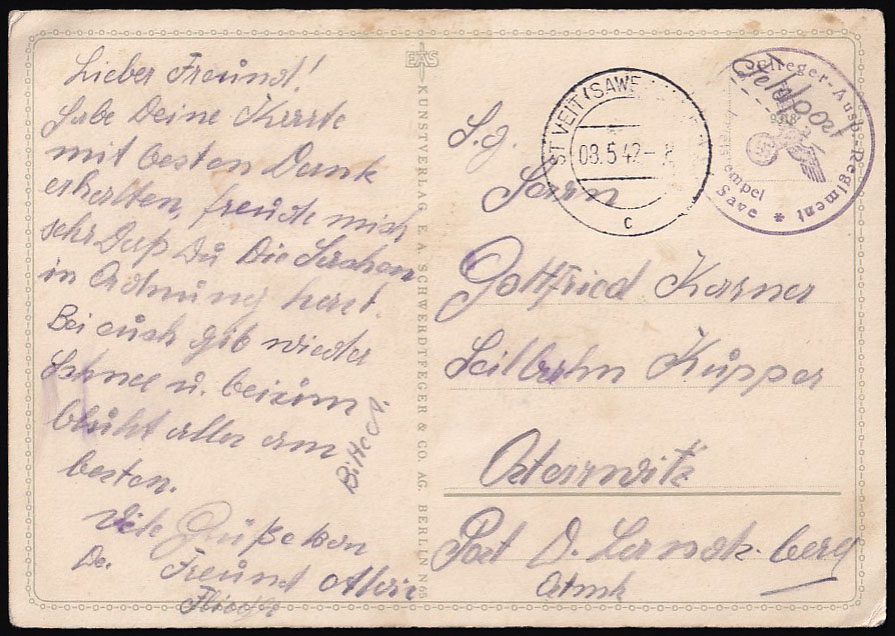 Lieber Freund!
Habe Deine Karte
mit besten Dank
erhalten, freute mich
sehr Daß Du Die Sachen
in Ordnung hast.
Bei euch gib wieder
Schnee u. bei
blüht alles am
besten.
Viele Grüße von
De. Freund
Flieger
Bitte
EAS
KUNSTVERLAG E. A. SCHWERDTFEGER & CO. AG. BERLIN N 65
ST VEIT (SAWE
08.5.42-
c
Feldpost
Flieger-Ausb.-Regiment
9318
Save *
S.g.
Herrn
Gottfried Karner
Seilbahn Kupper
Osterwitz
Post D. Landsberg